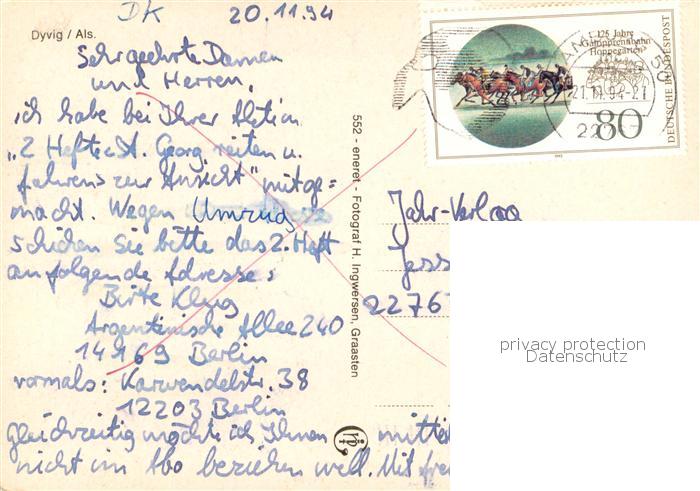 DK 20.11.94
Dyvig / Als.
Sehr geehrte Damen
und Herren,
ich habe bei Ihrer Aktion
„2 Hefte St. Georg reiten u.
fahren zur Ansicht" mitge=
macht. Wegen Umzug
schicken Sie bitte das 2. Heft
an folgende Adresse:
Birte Klug
Argentinische Allee 240
14169 Berlin
vormals: Karwendelstr. 38
12203 Berlin
Gleichzeitig möchte ich Ihnen
nicht im Abo beziehen will. Mit
552 - eneret - Fotograf H. Ingwersen, Graasten
125 Jahre
Galopprennbahn
Hoppegarten
DEUTSCHE BUNDESPOST
80
21.11.94-21
50
22
Jahr-Verlag
Jess
2276
privacy protection
Datenschutz